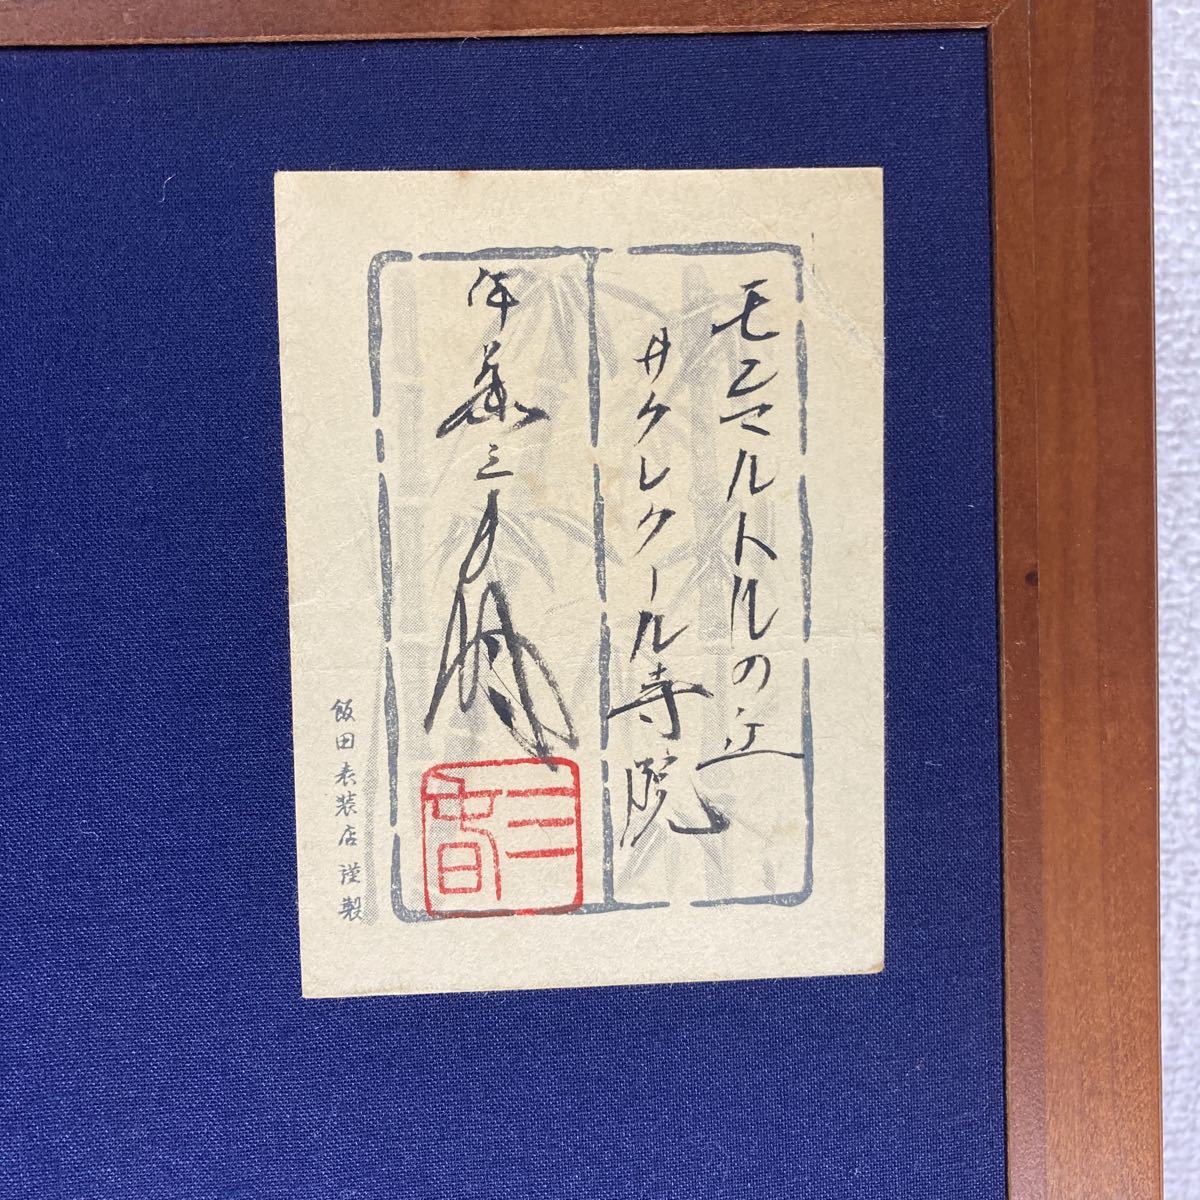 モンマルトルの丘
サクレクール寺院
伊藤三春
三春
飯田表装店謹製